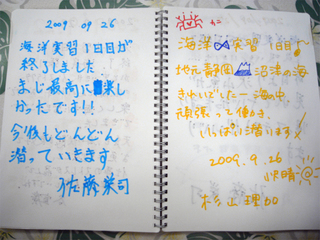 2009 09 26
海洋実習1日目が
終了しました
まじ最高に楽し
かったです!!
今後もどんどん
潜っていきます
佐藤栄司
海洋 実習 1日目
地元静岡 沼津の海
きれいでした 海の中
頑張って働き
いっぱい潜ります
2009.9.26
快晴
杉山理